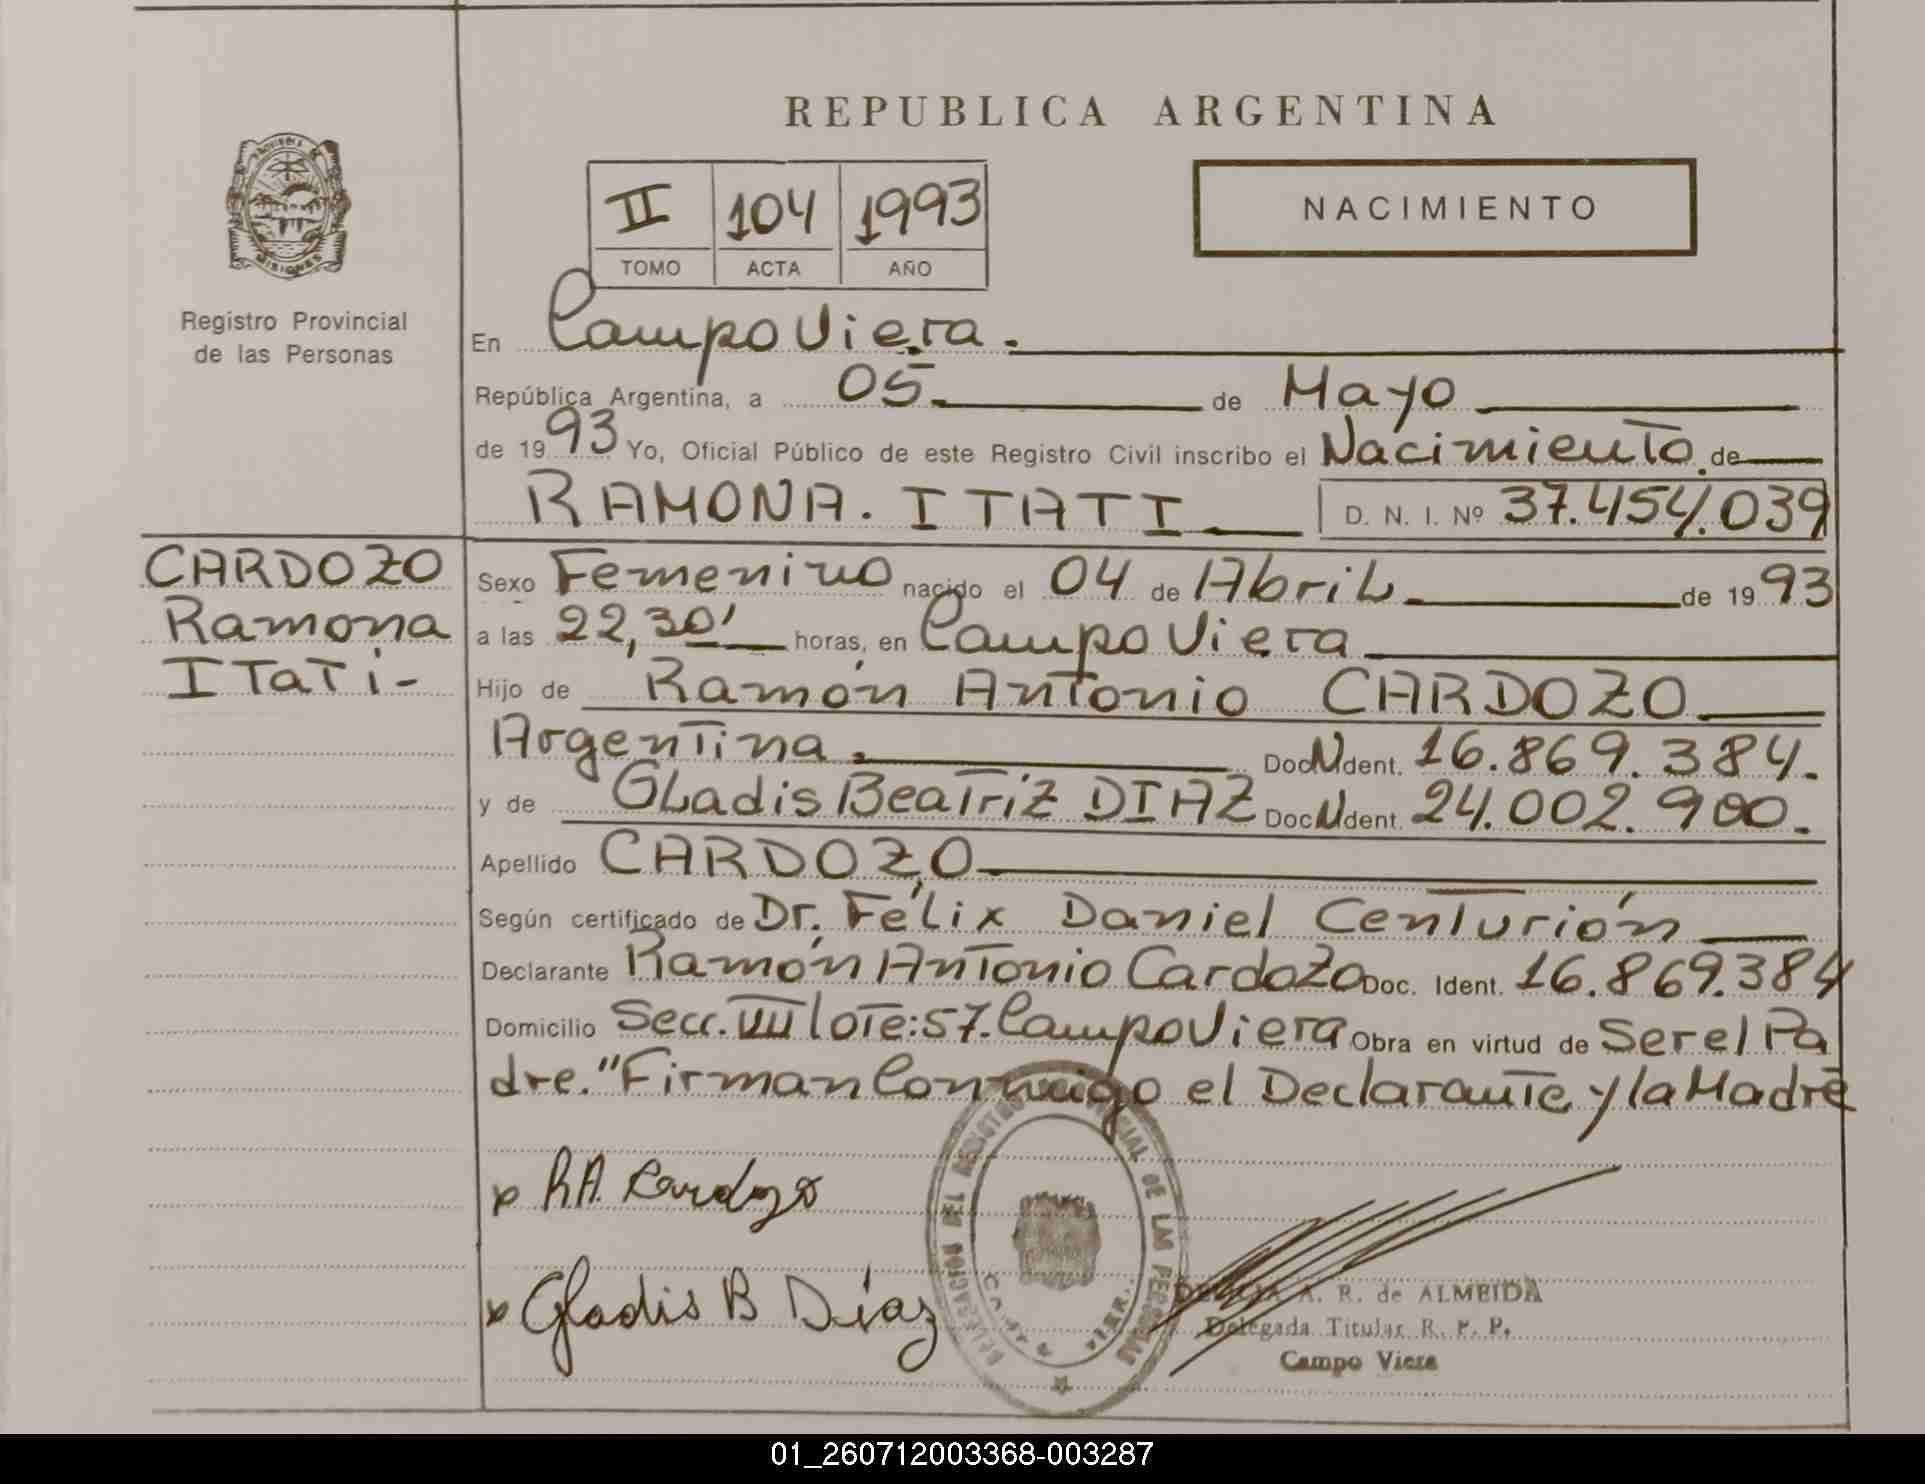 REPUBLICA ARGENTINA
II 104 1993
TOMO ACTA AÑO
NACIMIENTO
MISIONES
Registro Provincial
de las Personas
En Campo Viera.
República Argentina, a 05 de Mayo
de 1993 Yo, Oficial Público de este Registro Civil inscribo el Nacimiento de
RAMONA. ITATI D. N. I. Nº 37.454.039
CARDOZO
Ramona
ITaTi-
Sexo Femenino nacido el 04 de Abril de 1993
a las 22,30' horas, en Campo Viera
Hijo de Ramón Antonio CARDOZO
Argentina. Doc. Ident. 16.869.384.
y de Gladis Beatriz DIAZ Doc. Ident. 24.002.900.
Apellido CARDOZO
Según certificado de Dr. Félix Daniel Centurión
Declarante Ramón Antonio Cardozo Doc. Ident. 16.869.384
Domicilio Secc. VIII lote:57. Campo Viera Obra en virtud de Ser el Pa
dre." Firman Conmigo el Declarante y la Madre
R.A. Cardozo
Gladis B Díaz
DELEGACION DEL REGISTRO PROVINCIAL DE LAS PERSONAS
A. R. de ALMEIDA
Delegada Titular R. P. P.
Campo Viera
01_260712003368-003287